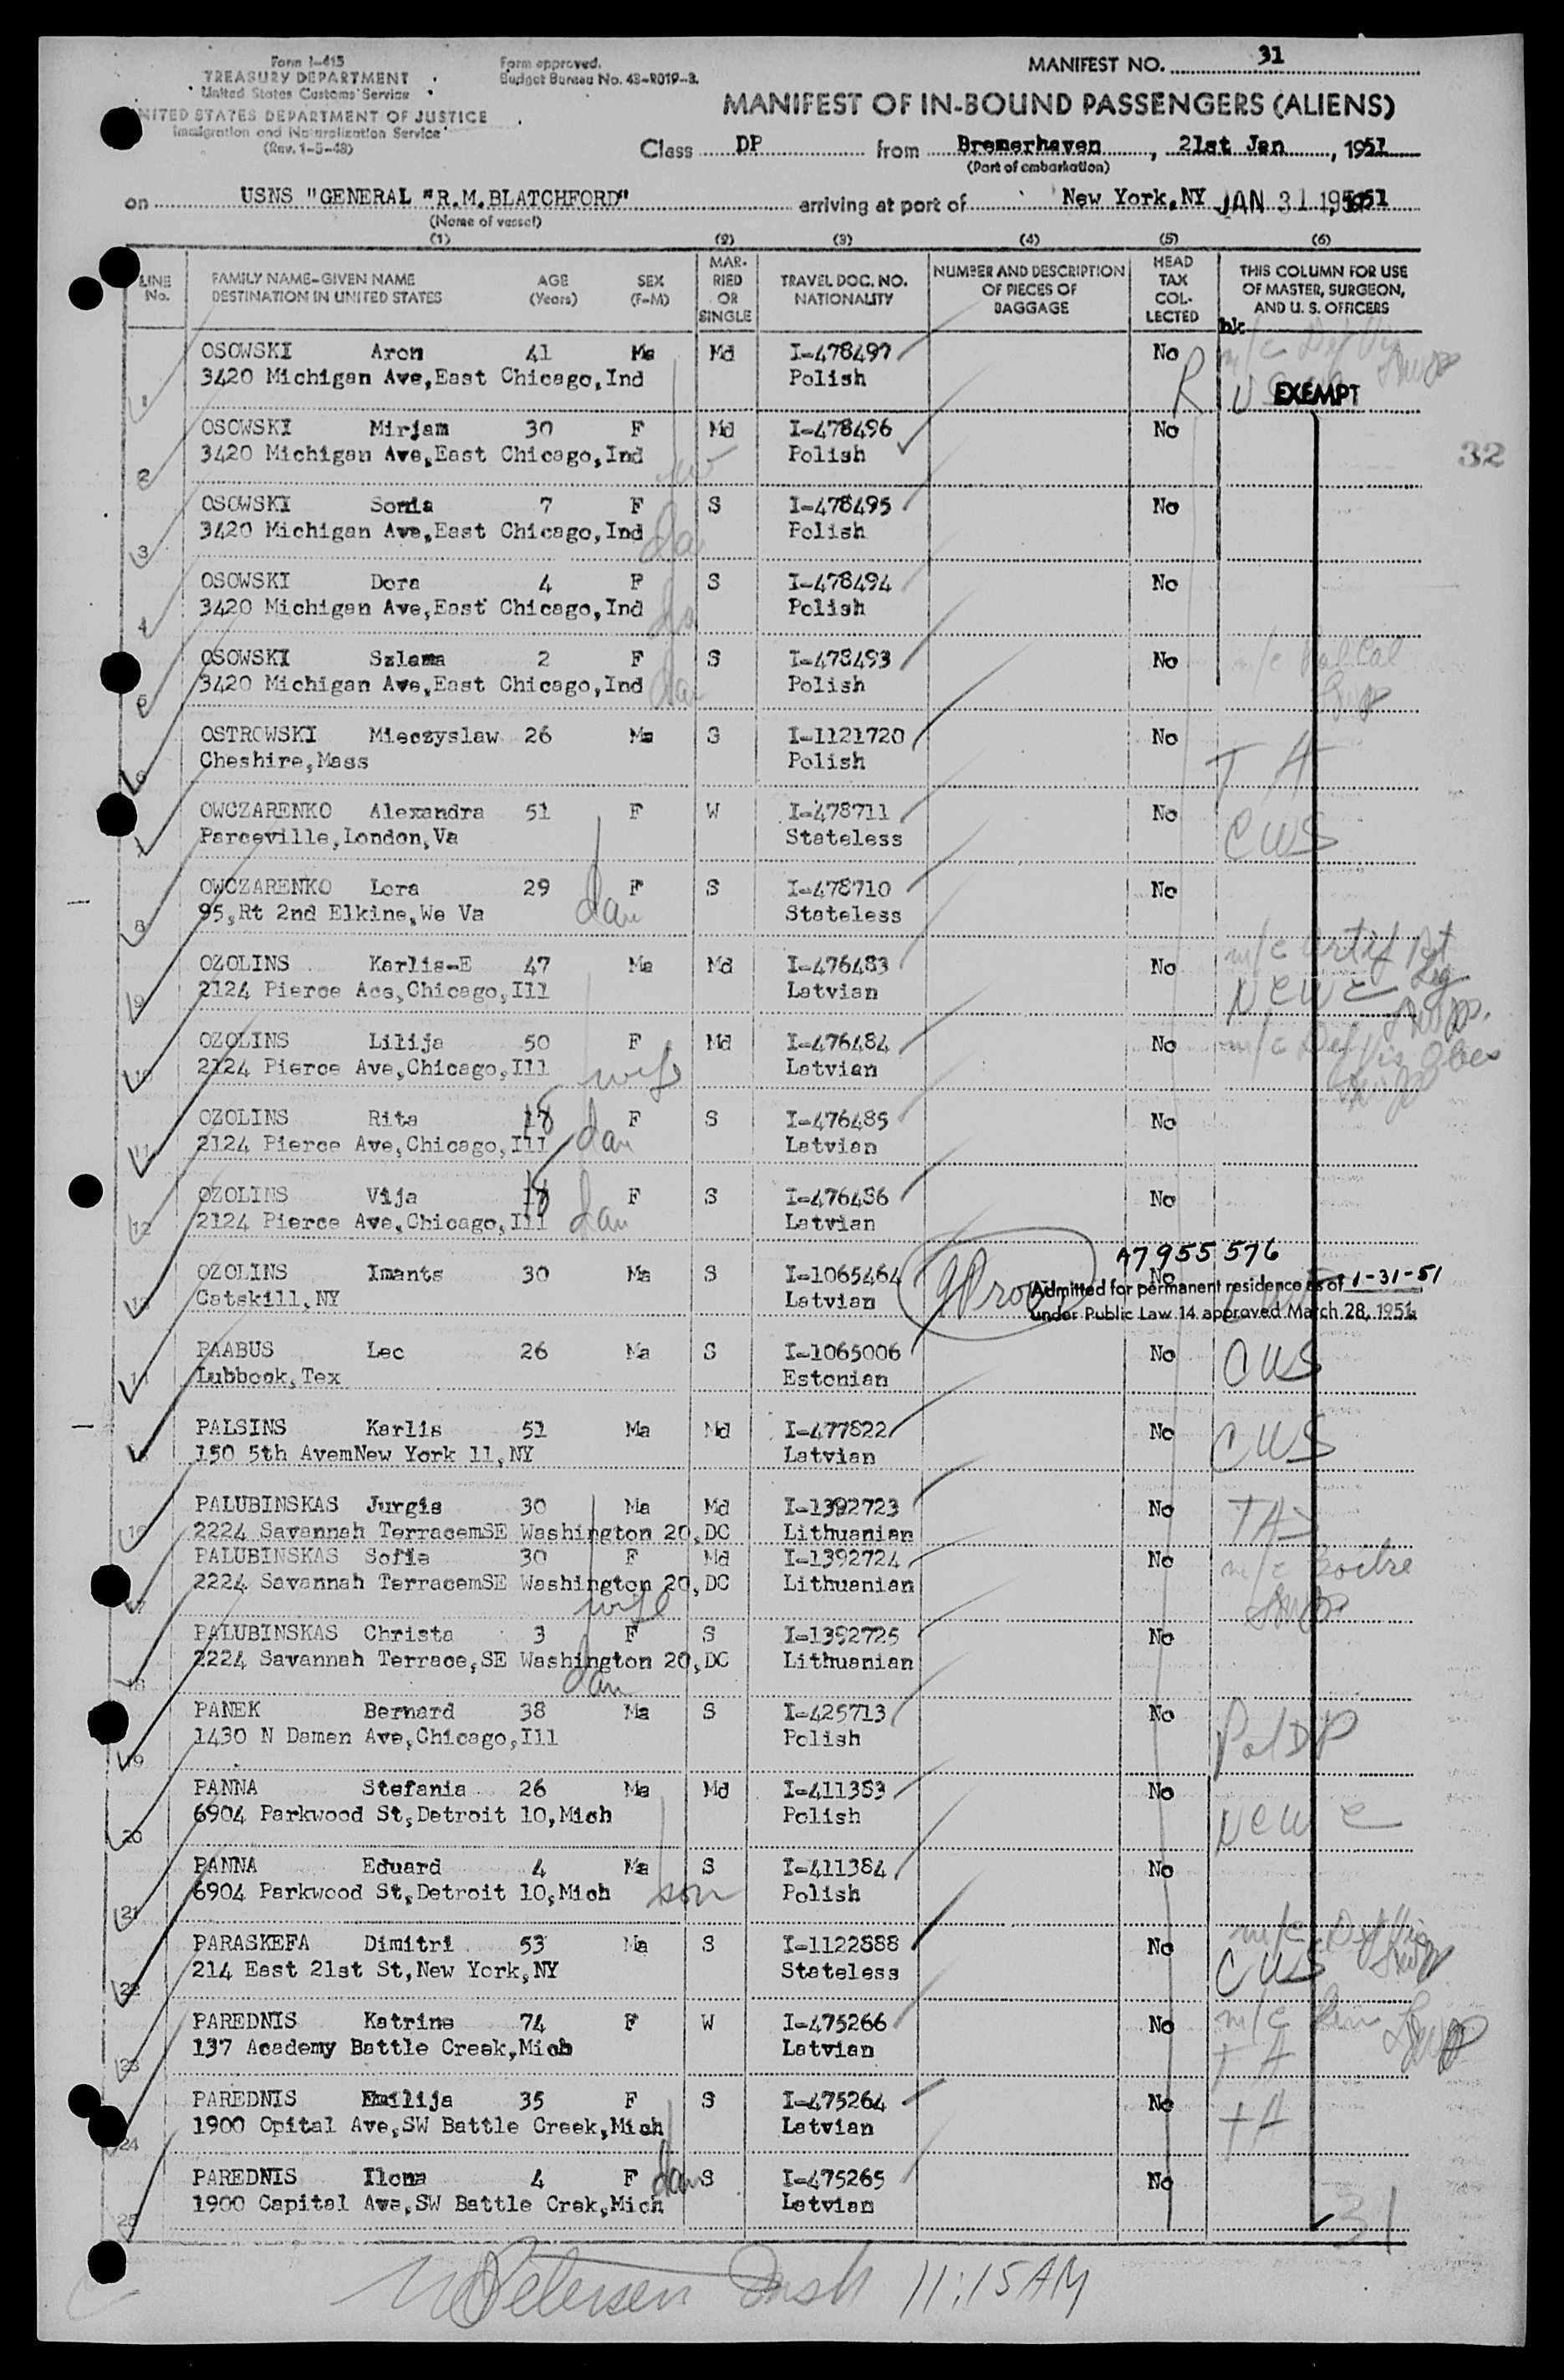 Form I-415
TREASURY DEPARTMENT
United States Customs Service
UNITED STATES DEPARTMENT OF JUSTICE
Immigration and Naturalization Service
(Rev. 1-5-48)
Form approved.
Budget Bureau No. 43-R019-3.
MANIFEST NO. 31
MANIFEST OF IN-BOUND PASSENGERS (ALIENS)
Class DP from Bremerhaven, 21st Jan, 1951
(Port of embarkation)
on USNS "GENERAL "R.M.BLATCHFORD" arriving at port of New York,NY JAN 31 1951
(Name of vessel)
(1) (2) (3) (4) (5) (6)
LINE No. FAMILY NAME-GIVEN NAME DESTINATION IN UNITED STATES AGE (Years) SEX (F-M) MARRIED OR SINGLE TRAVEL DOC. NO. NATIONALITY NUMBER AND DESCRIPTION OF PIECES OF BAGGAGE HEAD TAX COLLECTED THIS COLUMN FOR USE OF MASTER, SURGEON, AND U. S. OFFICERS
1 OSOWSKI Aron 41 Ma Md I-478497 No
3420 Michigan Ave,East Chicago,Ind Polish EXEMPT
2 OSOWSKI Mirjam 30 F Md I-478496 No
3420 Michigan Ave,East Chicago,Ind Polish
32
3 OSOWSKI Sonia 7 F S I-478495 No
3420 Michigan Ave,East Chicago,Ind Polish
4 OSOWSKI Dora 4 F S I-478494 No
3420 Michigan Ave,East Chicago,Ind Polish
5 OSOWSKI Szlama 2 F S I-478493 No
3420 Michigan Ave,East Chicago,Ind Polish
6 OSTROWSKI Mieczyslaw 26 Ma S I-1121720 No
Cheshire,Mass Polish T A
7 OWCZARENKO Alexandra 51 F W I-478711 No
Parceville,London,Va Stateless CWS
8 OWCZARENKO Lora 29 F S I-478710 No
95,Rt 2nd Elkine,We Va dau Stateless
9 OZOLINS Karlis-E 47 Ma Md I-476483 No
2124 Pierce Acs,Chicago,Ill Latvian
10 OZOLINS Lilija 50 F Md I-476484 No
2124 Pierce Ave,Chicago,Ill wife Latvian
11 OZOLINS Rita F S I-476485 No
2124 Pierce Ave,Chicago,Ill dau Latvian
12 OZOLINS Vija F S I-476486 No
2124 Pierce Ave,Chicago,Ill dau Latvian
A7955576
13 OZOLINS Imants 30 Ma S I-1065464 No
Catskill,NY Latvian
Admitted for permanent residence as of 1-31-51
under Public Law 14 approved March 28, 1951
14 PAABUS Leo 26 Ma S I-1065006 No
Lubbock,Tex Estonian CWS
PALSINS Karlis 51 Ma Md I-477822 No
150 5th AvemNew York 11,NY Latvian CWS
16 PALUBINSKAS Jurgis 30 Ma Md I-1392723 No
2224 Savannah TerracemSE Washington 20,DC Lithuanian
17 PALUBINSKAS Sofia 30 F Md I-1392724 No
2224 Savannah TerracemSE Washington 20,DC Lithuanian
wife
18 PALUBINSKAS Christa 3 F S I-1392725 No
2224 Savannah Terrace,SE Washington 20,DC Lithuanian
dau
19 PANEK Bernard 38 Ma S I-425713 No
1430 N Damen Ave,Chicago,Ill Polish Pol DP
20 PANNA Stefania 26 Ma Md I-411383 No
6904 Parkwood St,Detroit 10,Mich Polish
21 PANNA Eduard 4 Ma S I-411384 No
6904 Parkwood St,Detroit 10,Mich son Polish
22 PARASKEFA Dimitri 53 Ma S I-1122888 No
214 East 21st St,New York,NY Stateless CWS
23 PAREDNIS Katrina 74 F W I-475266 No
137 Academy Battle Creek,Mich Latvian T A
24 PAREDNIS Emilija 35 F S I-475264 No
1900 Cpital Ave,SW Battle Creek,Mich Latvian T A
25 PAREDNIS Ilona 4 F dau S I-475265 No
1900 Capital Ave,SW Battle Crek,Mich Latvian
31
11:15 AM